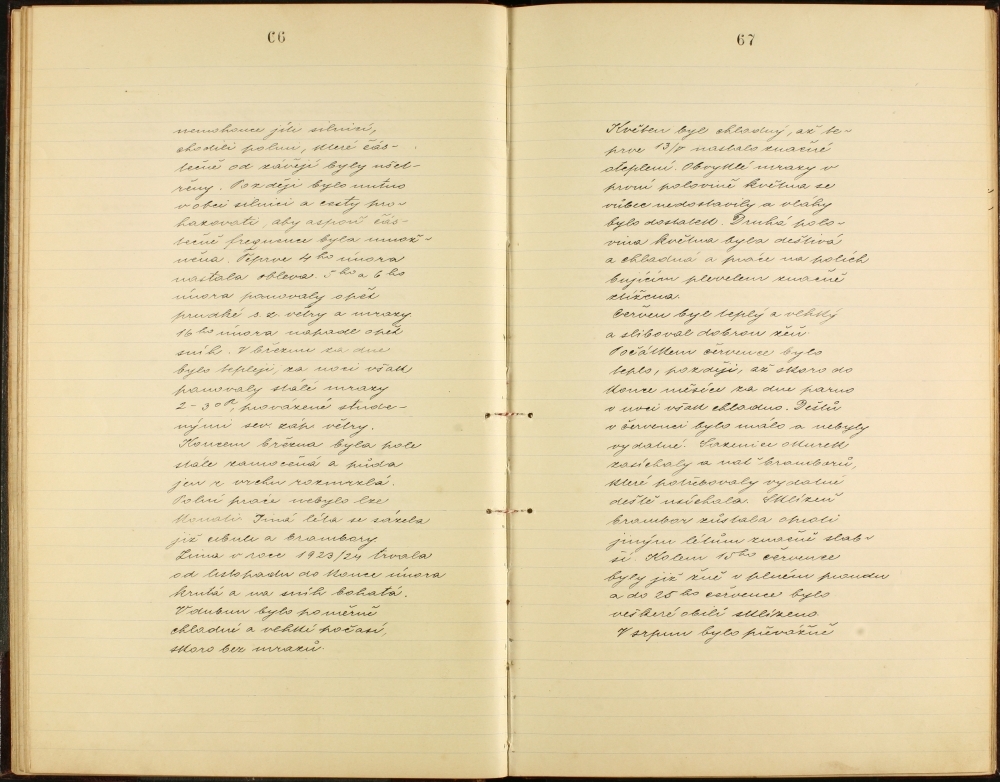 66
nemohouce jíti silnicí,
chodili polmi, které čás-
tečně od závějí byly ušet-
řeny. Později bylo nutno
v obci silnici a cesty pro-
hazovati, aby aspoň čás-
tečně frequence byla umož-
něna. Teprve 4ho února
nastala obleva. 5ho a 6ho
února panovaly opět
prudké s.z. větry a mrazy
16ho února napadl opět
sníh. V březnu za dne
bylo tepleji, za noci však
panovaly stálé mrazy
2-3°R, provázené stude-
nými sev. záp větry.
Koncem března byla pole
stále zamočená a půda
jen z vrchu rozmrzlá.
Polní práce nebylo lze
konati Jiná léta se sázela
již cibule a brambory
Zima v roce 1923/24 trvala
od listopadu do konce února
krutá a na sníh bohatá.
V dubnu bylo poměrně
chladné a vlhké počasí,
skoro bez mrazů.
67
Květen byl chladný, až te-
prve 13/V nastalo značné
oteplení. Obvyklé mrazy v
první polovině května se
vůbec nedostavily a vláhy
bylo dostatek. Druhá polo-
vina května byla deštivá
a chladná a práce na polích
bujícím plevelem značně
ztížena.
Červen byl teplý a vlhký
a sliboval dobrou žeň.
Počátkem července bylo
teplo, později, až skoro do
konce měsíce za dne parno
v noci však chladno. Dešťů
v červenci bylo málo a nebyly
vydatné. Sazenice okurek
zasíchaly a nať bramborů,
které potřebovaly vydatné
deště usíchala. Sklizeň
brambor zůstala oproti
jiným létům značně slab-
ší. Kolem 15ho července
byly již žně v plném proudu
a do 25ho července bylo
veškeré obilí sklizeno
V srpnu bylo převážně